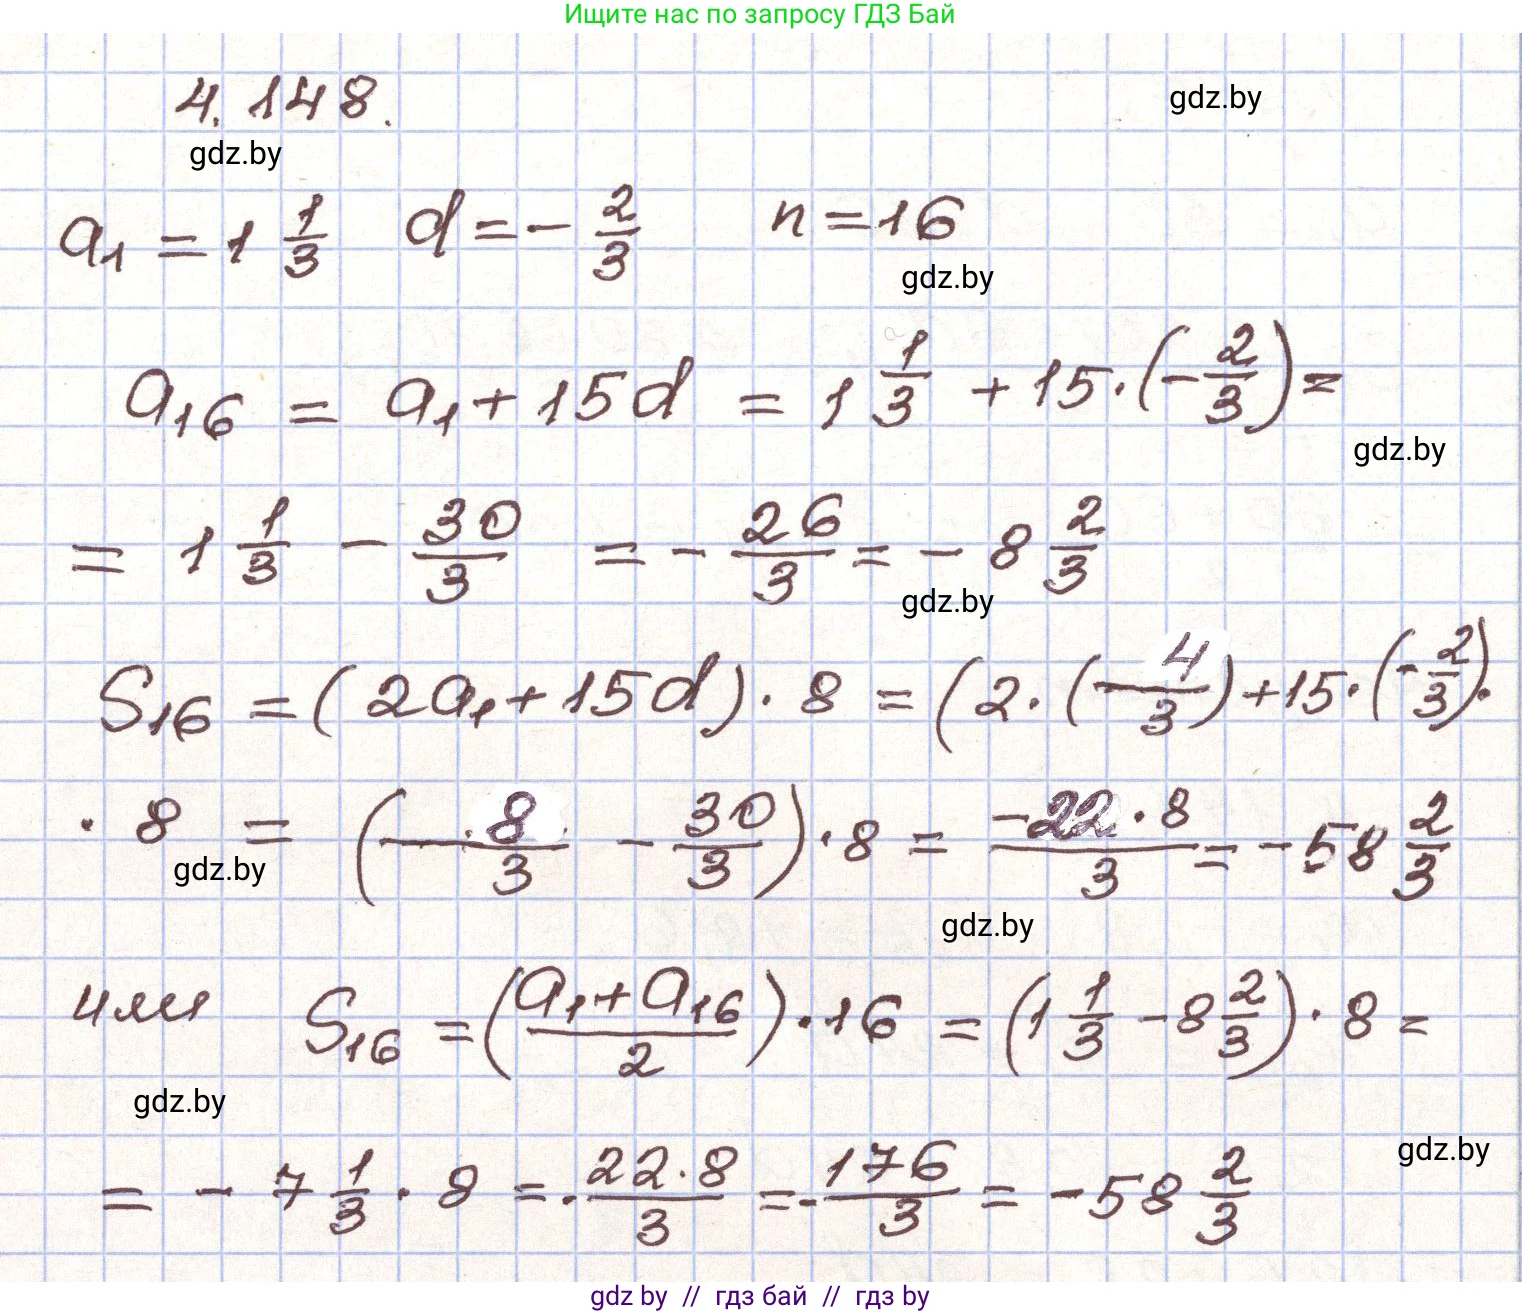 Ищите нас по запросу ГДЗ Бай
4.148.
gdz.by
gdz.by
a₁ = 1 1/3 d = - 2/3 n = 16
gdz.by
a₁₆ = a₁ + 15d = 1 1/3 + 15 · (- 2/3) =
gdz.by
= 1 1/3 - 30/3 = - 26/3 = - 8 2/3
gdz.by
S₁₆ = (2a₁ + 15d) · 8 = (2 · (4/3) + 15 · (- 2/3) ·
· 8 = (8/3 - 30/3) · 8 = -22 · 8/3 = - 58 2/3
gdz.by
gdz.by
или S₁₆ = (a₁ + a₁₆/2) · 16 = (1 1/3 - 8 2/3) · 8 =
gdz.by
gdz.by
= - 7 1/3 · 8 = - 22 · 8/3 = - 176/3 = - 58 2/3
gdz by // гдз бай // гдз by